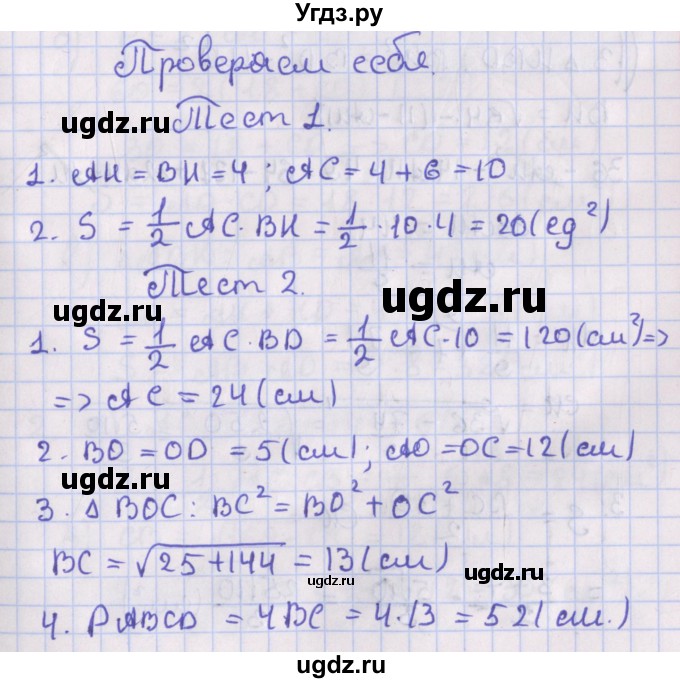 Угдз.ру
Проверяем себя.
ugdz.ru ugdz.ru
Тест 1.
1. AH = BH = 4 ; AC = 4 + 6 = 10
2. S = 1/2 AC · BH = 1/2 · 10 · 4 = 20 (ед²)
Тест 2.
ugdz.ru ugdz.ru
1. S = 1/2 AC · BD = 1/2 AC · 10 = 120 (см²) =>
=> AC = 24 (см)
ugdz.ru
2. BO = OD = 5 (см) ; AO = OC = 12 (см)
3. Δ BOC : BC² = BO² + OC²
ugdz.ru ugdz.ru
BC = √25+144 = 13 (см)
ugdz.ru
4. PABCD = 4BC = 4 · 13 = 52 (см.)
ugdz.ru